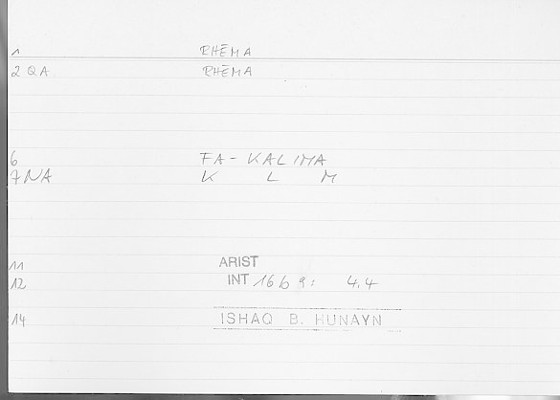 1 RHĒMA
2 QA RHĒMA
6 FA - KALIMA
7 NA K L M
11 ARIST
12 INT 16 b 9 : 4.4
14 ISHAQ B. HUNAYN